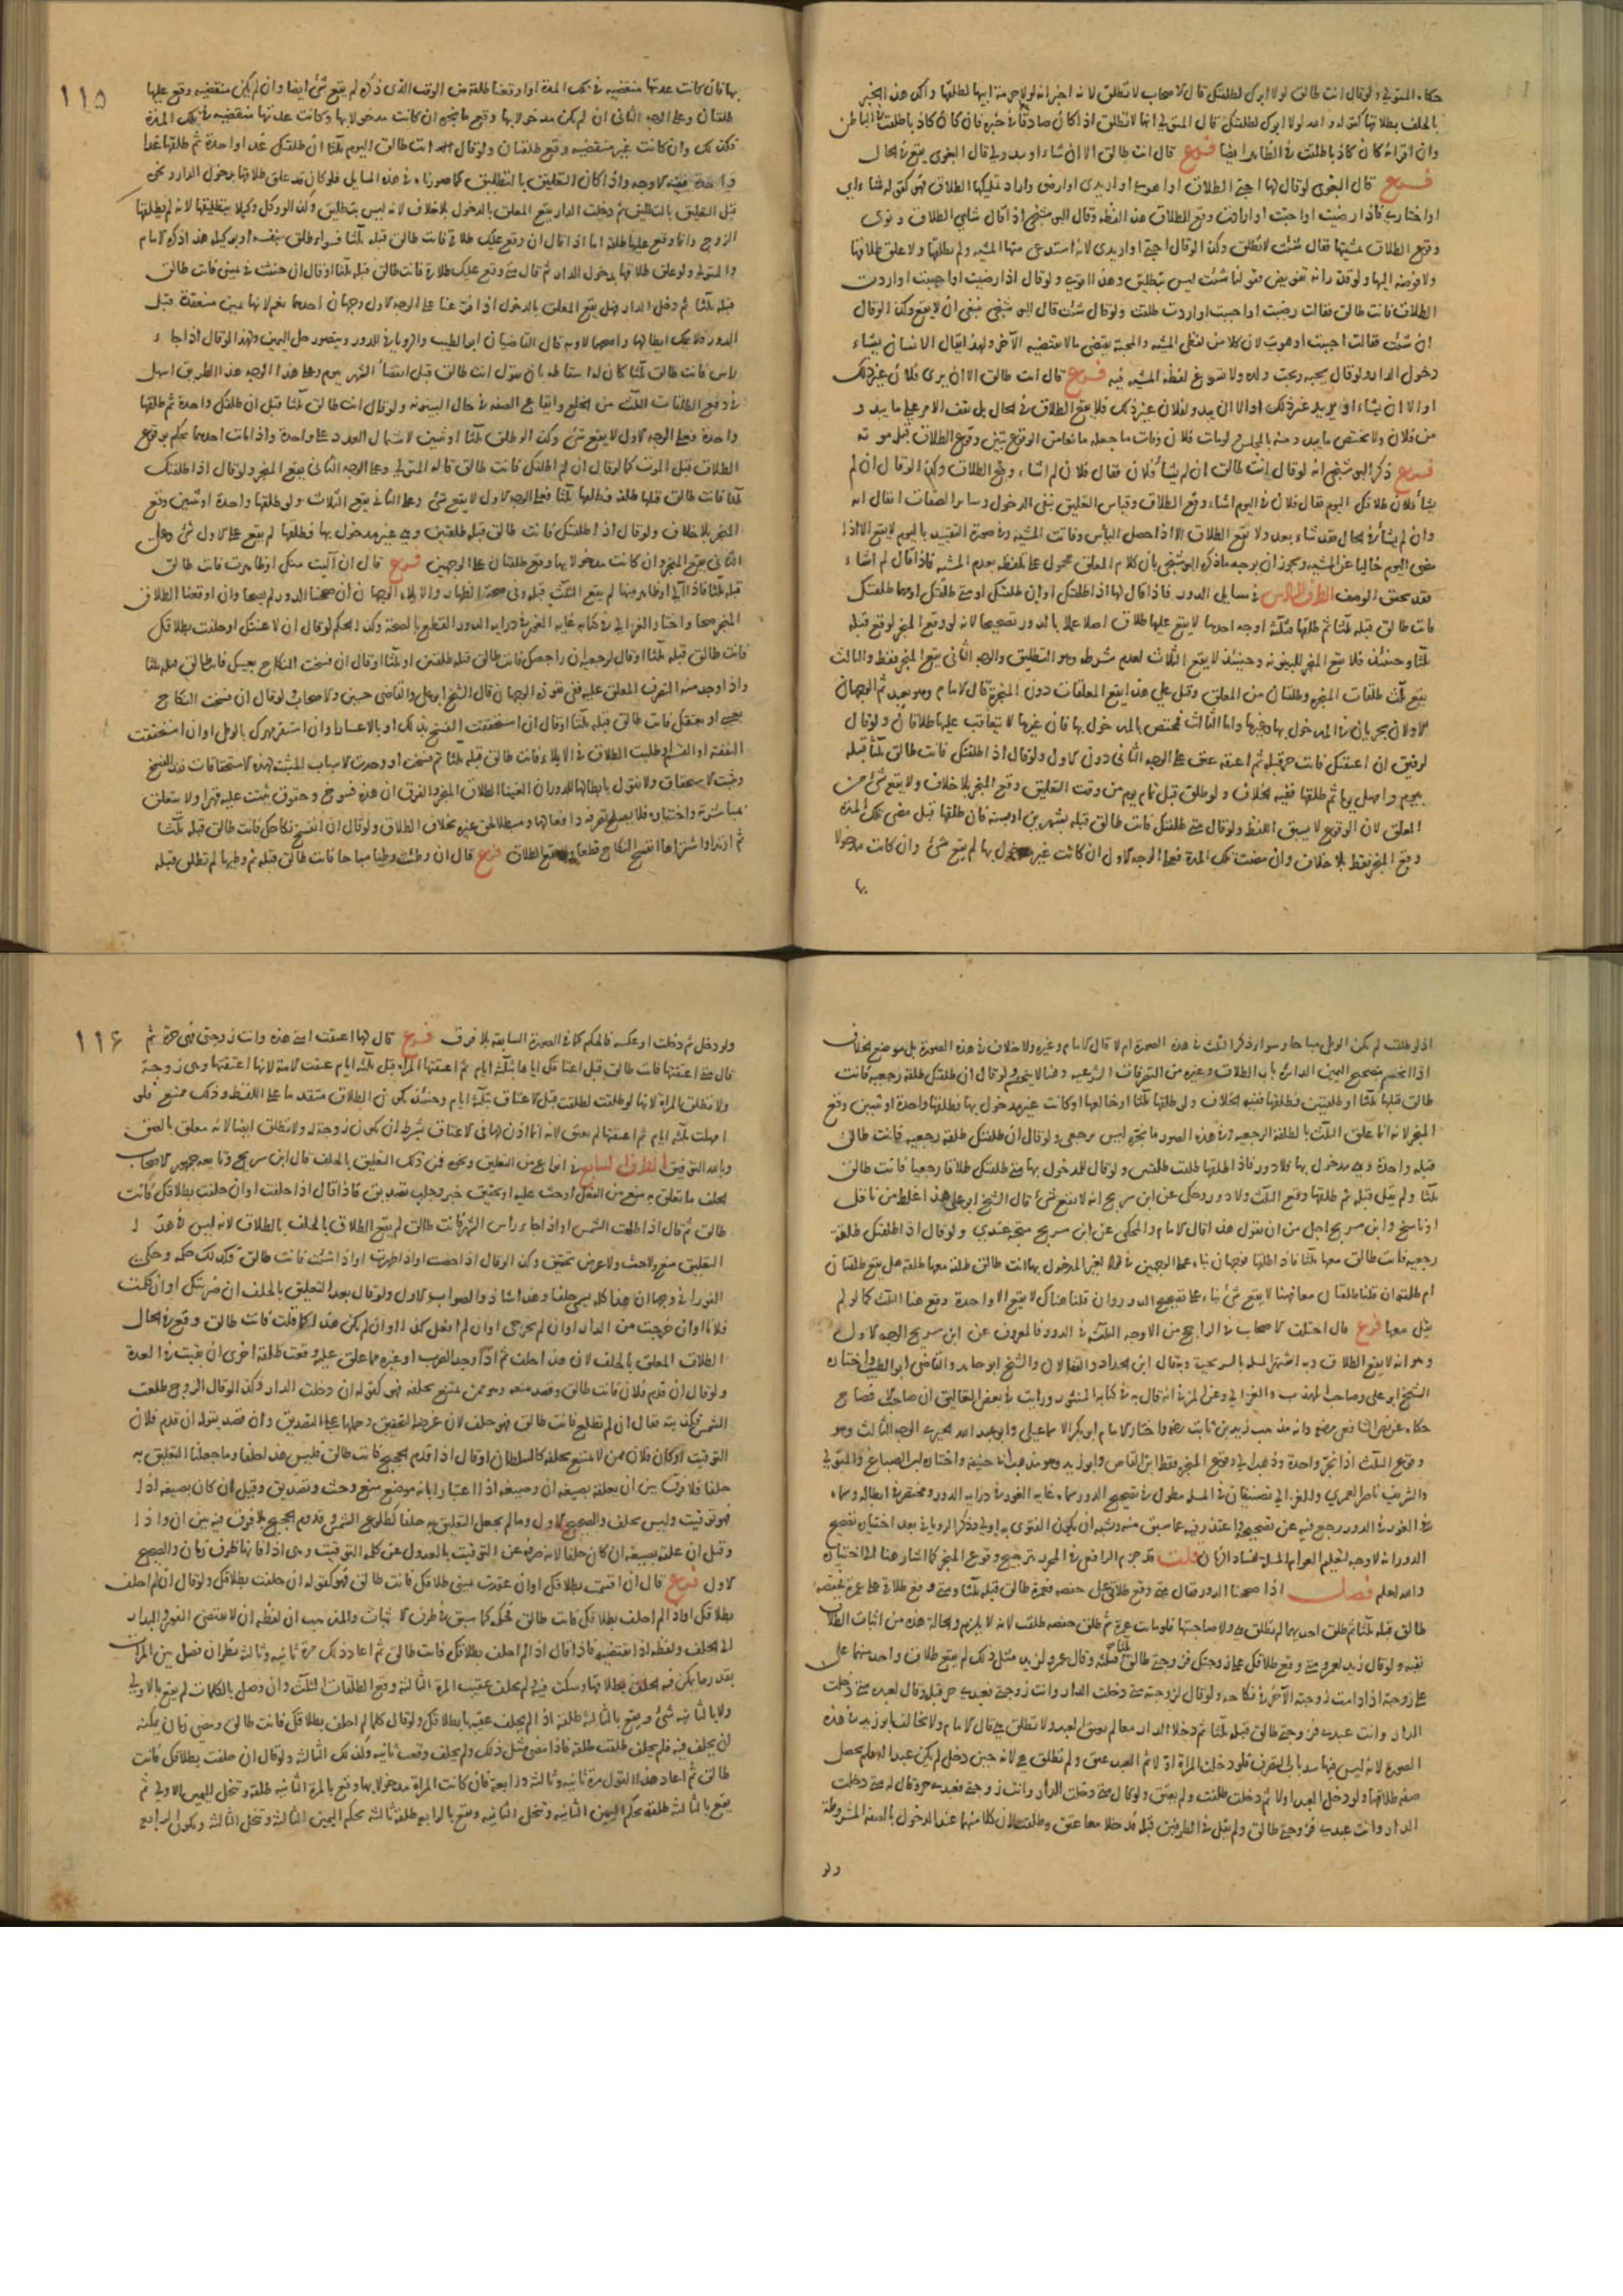 حكاه المتولي ولو قال انت طالق لولا ابوك لطلقتك قال الاصحاب لا تطلق لانه اخبر انه لولا حرمة ابيها لطلقها واكد هذا الخبر
بالحلف بطلاقها كقوله والله لولا ابوك لطلقتك قال المتولي انما لا تطلق اذا كان صادقا في خبره فان كان كاذبا طلقت في الباطن
وان اقر انه كان كاذبا طلقت في الظاهر ايضا فرع قال انت طالق الا ان شاء او يبدو لي قال البغوي يقع في الحال
فرع قال البغوي لو قال لها احبي الطلاق او اهوي او اريدي او ارضي واراد تمليكها الطلاق فهو كقوله شائي
او اختاري فاذا رضيت او احبت او ارادت وقع الطلاق هذا لفظه وقال البوشنجي اذا قال شائي الطلاق ونوى
وقوع الطلاق بمشيتها فقال شئت لا تطلق وكذا لو قال احبي او اريدي لانه استدعى منها المشيه ولم يطلقها ولا علق طلاقها
ولا فوضه اليها ولو قدر انه تفويض فقولها شئت ليس بتطليق وهذا اقوى ولو قال اذا رضيت او احببت او اردت
الطلاق فانت طالق فقالت رضيت او احببت او اردت طلقت ولو قال شئت قال البوشنجي ينبغي ان لا يقع وكذا لو قال
ان شئت فقالت احببت او هويت لان كلا من لفظي المشيه والمحبة يقتضي ما لا يقتضيه الآخر ولهذا يقال الانسان يشاء
دخول الدار ولو قال يحبه ويحب ولده ولا يسوغ لفظه المشيه فيه فرع قال انت طالق الا ان يرى فلان غير ذلك
او الا ان يشاء او يريد غير ذلك او الا ان يبدو لفلان غير ذلك فلا يقع الطلاق في الحال بل يقف الامر على ما يبدو
من فلان ولا يختص ما يبدو منه بالمجلس ولو مات فلان وفات ما جعله مانعا من الوقوع تبين وقوع الطلاق قبل موته
فرع ذكر البوشنجي انه لو قال انت طالق ان لم يشأ فلان فقال فلان لم اشاء وقع الطلاق وكذا لو قال ان لم
يشأ فلان طلاقك اليوم فقال فلان في اليوم لا اشاء وقع الطلاق وقياس التعليق بنفي الدخول وساير الصفات ان يقال انه
وان لم يشأ في الحال فقد يشاء بعد ولا يقع الطلاق الا اذا حصل اليأس وفاتت المشيه وفي صورة التقييد باليوم لا يقع الا اذا
مضى اليوم خاليا عن المشيه ويجوز ان يوجه ما ذكره البوشنجي بان كلام المعلق محمول على تلفظه بعدم المشيه فاذا قال لم اشاء
فقد تحقق الوصف الطرف السادس في مسايل الدور فاذا قال لها اذا طلقتك او ان طلقتك او متى طلقتك او مهما طلقتك
فانت طالق قبله ثلثا ثم طلقها فثلثة اوجه احدها لا يقع عليها طلاق اصلا عملا بالدور وتصحيحا لانه لو وقع المنجز لوقع قبله
ثلثا وحينئذ فلا يقع المنجز للبينونة وحينئذ لا يقع الثلاث لعدم شرطه وهو التطليق والوجه الثاني يقع المنجز فقط والثالث
يقع ثلث طلقات المنجزه وطلقتان من المعلق وقيل على هذا يقع المعلقات دون المنجزة قال الامام وهو بعيد ثم الوجهان
الاولان يجريان في المدخول بها وغيرها واما الثالث فمختص بالمدخول بها فان غيرها لا يتعاقب عليها طلاقان ولو قال
لرقيق ان اعتقتك فانت حر قبله ثم اعتقه عتق على الوجه الثاني دون الاول ولو قال اذا طلقتك فانت طالق ثلثا قبله
بيوم وامهل يوما ثم طلقها ففيه الخلاف ولو طلق قبل تمام يوم من وقت التعليق وقع المنجز بلا خلاف ولا يقع شيء من
المعلق لان الوقوع لا يسبق اللفظ ولو قال متى طلقتك فانت طالق قبله بشهرين او بسنة فان طلقها قبل مضي تلك المدة
وقع المنجز فقط بلا خلاف وان مضت تلك المدة فعلى الوجه الاول ان كانت غير مدخول بها لم يقع شيء وان كانت مدخولا
بها
١١٥
بها فان كانت عدتها منقضيه في تلك المدة او اوقعنا طلقة من الوقت الذي ذكره لم يقع شيء ايضا وان لم يكن منقضيه وقع عليها
طلقتان وعلى الوجه الثاني ان لم يكن مدخولا بها وقع ما نجزه وان كانت مدخولا بها وكانت عدتها منقضيه في تلك المدة
فكذلك وان كانت غير منقضيه وقع طلقتان ولو قال انت طالق اليوم ثلثا ان طلقتك غدا واحدة ثم طلقها غدا
واحدة ففيه الاوجه واذا كان التعليق بالتطليق كما صورناه في هذه المسايل فلو كان قد علق طلاقها بدخول الدار ونحوه
قبل التعليق بالتطليق ثم دخلت الدار يقع المعلق بالدخول بلا خلاف لانه ليس بتطليق وكذا لو وكل وكيلا بتطليقها لانه لم يطلقها
الزوج وانما وقع عليها طلقة اما اذا قال ان وقع عليك طلاقي فانت طالق قبله ثلثا فسواء طلق بنفسه او بوكيله هذا ذكره الامام
والمتولي ولو علق طلاقها بدخول الدار ثم قال متى وقع عليك طلاقي فانت طالق قبله ثلثا او قال ان حنثت في يميني فانت طالق
قبله ثلثا ثم دخل الدار فهل يقع المعلق بالدخول اذا فرعنا على الوجه الاول وجهان احدهما نعم لانها يمين منعقدة قبل
الدور فلا يملك ابطالها واصحهما لا وبه قال القاضيان ابو الطيب والروياني للدور ويتصور حل اليمين ولهذا لو قال اذا جاء
راس فانت طالق ثلثا كان له اسقاطه بان يقول انت طالق قبل انقضاء الشهر بيوم وعلى هذا الوجه هذا الطريق اسهل
في دفع الطلقات الثلث من الخلع وايقاع الصفه في حال البينونه ولو قال انت طالق ثلثا قبل ان طلقتك واحدة ثم طلقها
واحدة فعلى الوجه الاول لا يقع شيء وكذا لو طلق ثلثا او ثنتين لاشتمال العدد على واحدة واذا مات احدهما يحكم بوقوع
الطلاق قبل الموت كما لو قال ان لم اطلقك فانت طالق قاله المتولي وعلى الوجه الثاني يقع المنجز ولو قال اذا طلقتك
ثلثا فانت طالق قبلها طلقة فطلقها ثلثا فعلى الوجه الاول لا يقع شيء وعلى الثاني يقع الثلاث ولو طلقها واحدة او ثنتين وقع
المنجز بلا خلاف ولو قال اذا طلقتك فانت طالق قبله طلقتين وهي غير مدخول بها فطلقها لم يقع على الاول شيء وعلى
الثاني يقع المنجز وان كانت مدخولا بها وقع طلقتان على الوجهين فرع قال ان آليت منك او ظاهرت فانت طالق
قبله ثلثا فاذا آلى او ظاهر منها لم يقع الثلث قبله وفي صحة الظهار والايلاء الوجهان ان صححنا الدور لم يصحا وان اوقعنا الطلاق
المنجز صحا واختار الغزالي في كتابه غايه الغور في دراية الدور القطع بالصحة وكذا الحكم لو قال ان لاعنتك او حلفت بطلاقك
فانت طالق قبله ثلثا او قال لرجعيه ان راجعتك فانت طالق قبله طلقتين او ثلثا او قال ان فسخت النكاح بعيبك فانت طالق قبله ثلثا
واذا وجد منه التصرف المعلق عليه ففي نفوذه الوجهان قال الشيخ ابو علي والقاضي حسين والاصحاب ولو قال ان فسخت النكاح
بعيبي او بعتقك فانت طالق قبله ثلثا او قال ان استحققت الفسخ بذلك او بالاعسار او ان استقر مهرك بالوطي او ان استحققت
النفقة او القسم او طلبت الطلاق في الايلاء فانت طالق قبله ثلثا ثم فسخت او وجدت الاسباب المثبتة لهذه الاستحقاقات نفذ الفسخ
وثبت الاستحقاق ولا نقول بابطالها للدور وان الغينا الطلاق المنجز والفرق ان هذه فسوخ وحقوق تثبت عليه قهرا ولا يتعلق
بمباشرته واختياره فلا يصلح تصرفه دافعا لها ومبطلا لحق غيره بخلاف الطلاق ولو قال ان انفسخ نكاحك فانت طالق قبله ثلثا
ثم ارتد او اشتراها انفسخ النكاح قطعا ولم يقع الطلاق فرع قال ان وطئتك وطيا مباحا فانت طالق قبله ثم وطيها لم تطلق قبله
اذ لو طلقت لم يكن الوطي مباحا وسواء ذكر الثلث في هذه الصورة ام لا قال الامام وغيره ولا خلاف في هذه الصورة بل موضع الخلاف
اذا انحسم بتصحيح اليمين الدائرة باب الطلاق وغيره من التصرفات الشرعيه وهنا لا ينحسم ولو قال ان طلقتك طلقة رجعيه فانت
طالق قبلها ثلثا او طلقتين فطلقها ففيه الخلاف ولو طلقها ثلثا او خالعها او كانت غير مدخول بها فطلقها واحدة او ثنتين وقع
المنجز لانه انما علق الثلث بالطلقة الرجعيه وفي هذه الصور ما نجزه ليس برجعي ولو قال ان طلقتك طلقة رجعيه فانت طالق
قبله واحدة وهي مدخول بها فلا دور فاذا طلقها طلقت طلقتين ولو قال لمدخول بها متى طلقتك طلاقا رجعيا فانت طالق
ثلثا ولم يقل قبله ثم طلقها وقع الثلث ولا دور وحكى عن ابن سريج انه لا يقع شيء قال الشيخ ابو علي هذا غلط من ناقل
او ناسخ وابن سريج اجل من ان يقول هذا قال الامام والمحكي عن ابن سريج متجه عندي ولو قال اذا طلقتك طلقة
رجعيه فانت طالق معها ثلثا فاذا طلقها فوجهان بناء على الوجهين في قوله لغير المدخول بها انت طالق طلقة معها طلقة هل يقع طلقتان
ام طلقة ان قلنا طلقتان معا فهنا لا يقع شيء بناء على تصحيح الدور وان قلنا هناك لا يقع الا واحدة وقع هنا الثلث كما لو لم
يقل معها فرع قال اختلف الاصحاب في الراجح من الاوجه الثلثة في الدور فالمعروف عن ابن سريج الوجه الاول
وهو انه لا يقع الطلاق وبه اشتهر المسلة بالسريجية وبه قال ابن الحداد والقفالان والشيخ ابو حامد والقاضي ابو الطيب واختاره
الشيخ ابو علي وصاحب المهذب والغزالي وعن المزني انه قال به في كتابه المنثور ورايت في بعض التعاليق ان صاحب الافصاح
حكاه عن نص الشافعي رضه وانه مذهب زيد بن ثابت رضه واختار الامام ابو بكر الاسماعيلي وابو عبد الله الوجه الثالث وهو
وقوع الثلث اذا نجز واحدة وذهب الى وقوع المنجز فقط ابن القاص وابو زيد وهو مذهب ابي حنيفه واختاره ابن الصباغ والمتولي
والشريف ناصر العمري وللغزالي تصنيفان في المسلة مطول في تصحيح الدور سماه غايه الغور في دراية الدور ومختصر في ابطاله وسماه
في الغور في الدور رجع فيه عن تصحيحه واعتذر فيه عما سبق منه ويشبه ان يكون الفتوى به اولى وذكر الروياني بعد اختياره تصحيح
الدور انه لا وجه لتعليم العوام المسلة لفساد الزمان قلت قد جزم الرافعي في المحرر بترجيح وقوع المنجز كما اشار هنا الى اختياره
والله اعلم فصل اذا صححنا الدور فقال متى وقع طلاقي على حفصه فعمرة طالق قبله ثلثا ومتى وقع طلاقي على عمرة فحفصه
طالق قبله ثلثا ثم طلق احديهما لم تطلق هي ولا صاحبتها فلو ماتت عمرة ثم طلق حفصه طلقت لانه لا يلزم والحالة هذه من اثبات الطلاق
نفيه ولو قال زيد لعمرو متى وقع طلاقك على زوجتك فزوجتي طالق قبله ثلثا وقال عمرو لزيد مثل ذلك لم يقع طلاق واحد منهما على
على زوجته اذا دامت زوجته الآخر في نكاحه ولو قال لزوجته متى دخلت الدار وانت زوجتي فعبدي حر قبله وقال لعبده متى دخلت
الدار وانت عبدي فزوجتي طالق قبله ثلثا ثم دخلا الدار معا لم يعتق العبد ولا تطلق هي قال الامام ولا يخالف ابو زيد في هذه
الصورة لانه ليس فيها سد باب التصرف فلو دخلت المراة اولا ثم العبد عتق ولم تطلق هي لانه حين دخل لم يكن عبدا له فلم يحصل
صفة طلاقها ولو دخل العبد اولا ثم دخلت طلقت ولم يعتق ولو قال متى دخلت الدار وانت زوجتي فعبدي حر وقال له متى دخلت
الدار وانت عبدي فزوجتي طالق ولم يقل في الطرفين قبله فدخلا معا عتق وطلقت لان كلا منهما عند الدخول بالصفة المشروطة
ولو
١١٦
ولو دخل ثم دخلت او عكسه فالحكم كما في الصورة السابقة بلا فرق فرع قال لها اعتقت امتي هذه وانت زوجتي فهي حرة ثم
قال متى اعتقتها فانت طالق قبل اعتاقك اياها بثلثة ايام ثم اعتقتها المراة قبل ثلثة ايام عتقت الامة لانها اعتقتها وهي زوجة
ولا تطلق المراة لانها لو طلقت لطلقت قبل الاعتاق بثلثة ايام وحينئذ يكون الطلاق متقدما على اللفظ وذلك ممتنع فلو
امهلت ثلثة ايام ثم اعتقتها لم يعتق لانه انما اذن لها في الاعتاق بشرط ان يكون زوجة له ولا تطلق ايضا لانه معلق بالعتق
وبالله التوفيق الطرف السابع في انواع من التعليق ونحوه فمن ذلك التعليق بالحلف قال ابن سريج وتابعه جمهور الاصحاب
الحلف ما تعلق به منع من الفعل او حث عليه او تحقيق خبر وجلب تصديق فاذا قال اذا حلفت او ان حلفت بطلاقك فانت
طالق ثم قال اذا طلعت الشمس او اذا جاء راس الشهر فانت طالق لم يقع الطلاق بالحلف بالطلاق لانه ليس في هذا
التعليق منع ولا حث ولا غرض تحقيق وكذا لو قال اذا حضت او اذا طهرت او اذا شئت فانت طالق فكذلك حكمه وحكى
الفوراني وجها ان هذا كله يسمى حلفا وهذا شاذ والصواب الاول ولو قال بعد التعليق بالحلف ان ضربتك او ان كلمت
فلانا او ان خرجت من الدار او ان لم تخرجي او ان لم افعل كذا او ان لم يكن هذا كما قلت فانت طالق وقع في الحال
الطلاق المعلق بالحلف لان هذا حلف ثم اذا وجد الضرب او غيره مما علق عليه وقعت طلقة اخرى ان بقيت في العدة
ولو قال ان قدم فلان فانت طالق وقصد منعه وهو ممن يمتنع بحلفه فهو كقوله ان دخلت الدار وكذا لو قال الزوج طلعت
الشمس فكذبته فقال ان لم تطلع فانت طالق فهو حلف لان غرضه التحقيق وحملها على التصديق وان قصد بقوله ان قدم فلان
التوقيت او كان فلان ممن لا يمتنع بحلفه كالسلطان او قال اذا قدم الحجيج فانت طالق فليس هذا حلفا وما جعلنا التعليق به
حلفا فلا فرق بين ان يعلقه بصيغة ان وصيغة اذا اعتبارا بانه موضع منع وحث وتصديق وقيل ان كان بصيغة اذا
فهو توقيت وليس بحلف والصحيح الاول وما لم يجعل التعليق به حلفا كطلوع الشمس وقدوم الحجيج لا فرق فيه بين ان واذا
وقيل ان علقه بصيغة ان كان حلفا لانه صرفه عن التوقيت بالعدول عن كلمة التوقيت وهي اذا فانها ظرف زمان والصحيح
الاول فرع قال ان اقسمت بطلاقك او ان عقدت يميني بطلاقك فانت طالق فهو كقوله ان حلفت بطلاقك ولو قال ان لم احلف
بطلاقك او اذا لم احلف بطلاقك فانت طالق فحكمه كما سبق في طرف الاثبات والمذهب ان لفظة ان لا يقتضي الفور والبدار
الى الحلف ولفظة اذا تقتضيه فاذا قال اذا لم احلف بطلاقك فانت طالق ثم اعاد ذلك مرة ثانيه وثالثه نظر ان فصل بين المرات
بقدر ما يمكن فيه الحلف بطلاقها وسكت فيه ولم يحلف عقيب المرة الثالثة وقع الطلقات الثلث وان وصل بالكلمات لم يقع بالاولى
ولا بالثانيه شيء ويقع بالثالثة طلقة اذا لم يحلف عقبها بطلاقك ولو قال كلما لم احلف بطلاقك فانت طالق ومضى زمان يمكنه
ان يحلف فيه فلم يحلف طلقت طلقة فاذا مضى مثل ذلك ولم يحلف وقعت ثانيه وكذلك الثالثة ولو قال ان حلفت بطلاقك فانت
طالق ثم اعاد هذا القول مرة ثانيه وثالثه ورابعه فان كانت المراة مدخولا بها وقع بالمرة الثانيه طلقة وتنحل اليمين الاولى ثم
يقع بالثالثة طلقة بحكم اليمين الثانيه وتنحل الثانيه ويقع بالرابعه طلقة ثالثة بحكم اليمين الثالثة وتنحل الثالثة ويكون الرابعه